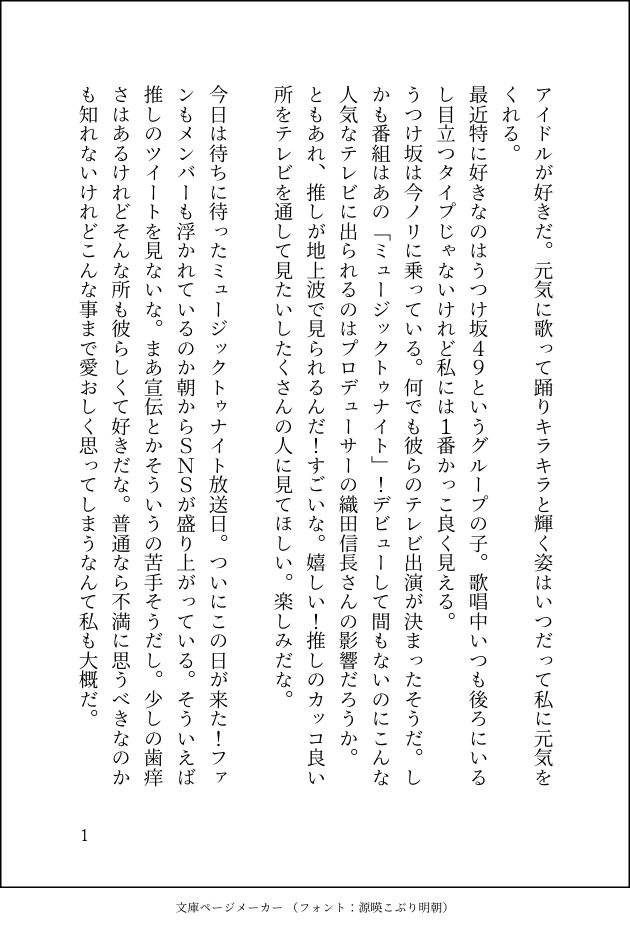 アイドルが好きだ。元気に歌って踊りキラキラと輝く姿はいつだって私に元気を
くれる。
最近特に好きなのはうつけ坂４９というグループの子。歌唱中いつも後ろにいる
し目立つタイプじゃないけれど私には１番かっこ良く見える。
うつけ坂は今ノリに乗っている。何でも彼らのテレビ出演が決まったそうだ。し
かも番組はあの「ミュージックトゥナイト」！デビューして間もないのにこんな
人気なテレビに出られるのはプロデューサーの織田信長さんの影響だろうか。
ともあれ、推しが地上波で見られるんだ！すごいな。嬉しい！推しのカッコ良い
所をテレビを通して見たいしたくさんの人に見てほしい。楽しみだな。
今日は待ちに待ったミュージックトゥナイト放送日。ついにこの日が来た！ファ
ンもメンバーも浮かれているのか朝からＳＮＳが盛り上がっている。そういえば
推しのツイートを見ないな。まあ宣伝とかそういうの苦手そうだし。少しの歯痒
さはあるけれどそんな所も彼らしくて好きだな。普通なら不満に思うべきなのか
も知れないけれどこんな事まで愛おしく思ってしまうなんて私も大概だ。
1
文庫ページメーカー（フォント：源暎こぶり明朝）